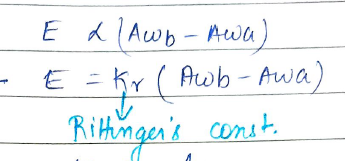 E α (Awb - Awa)
- E = Kr (Awb - Awa)
Rittinger's const.